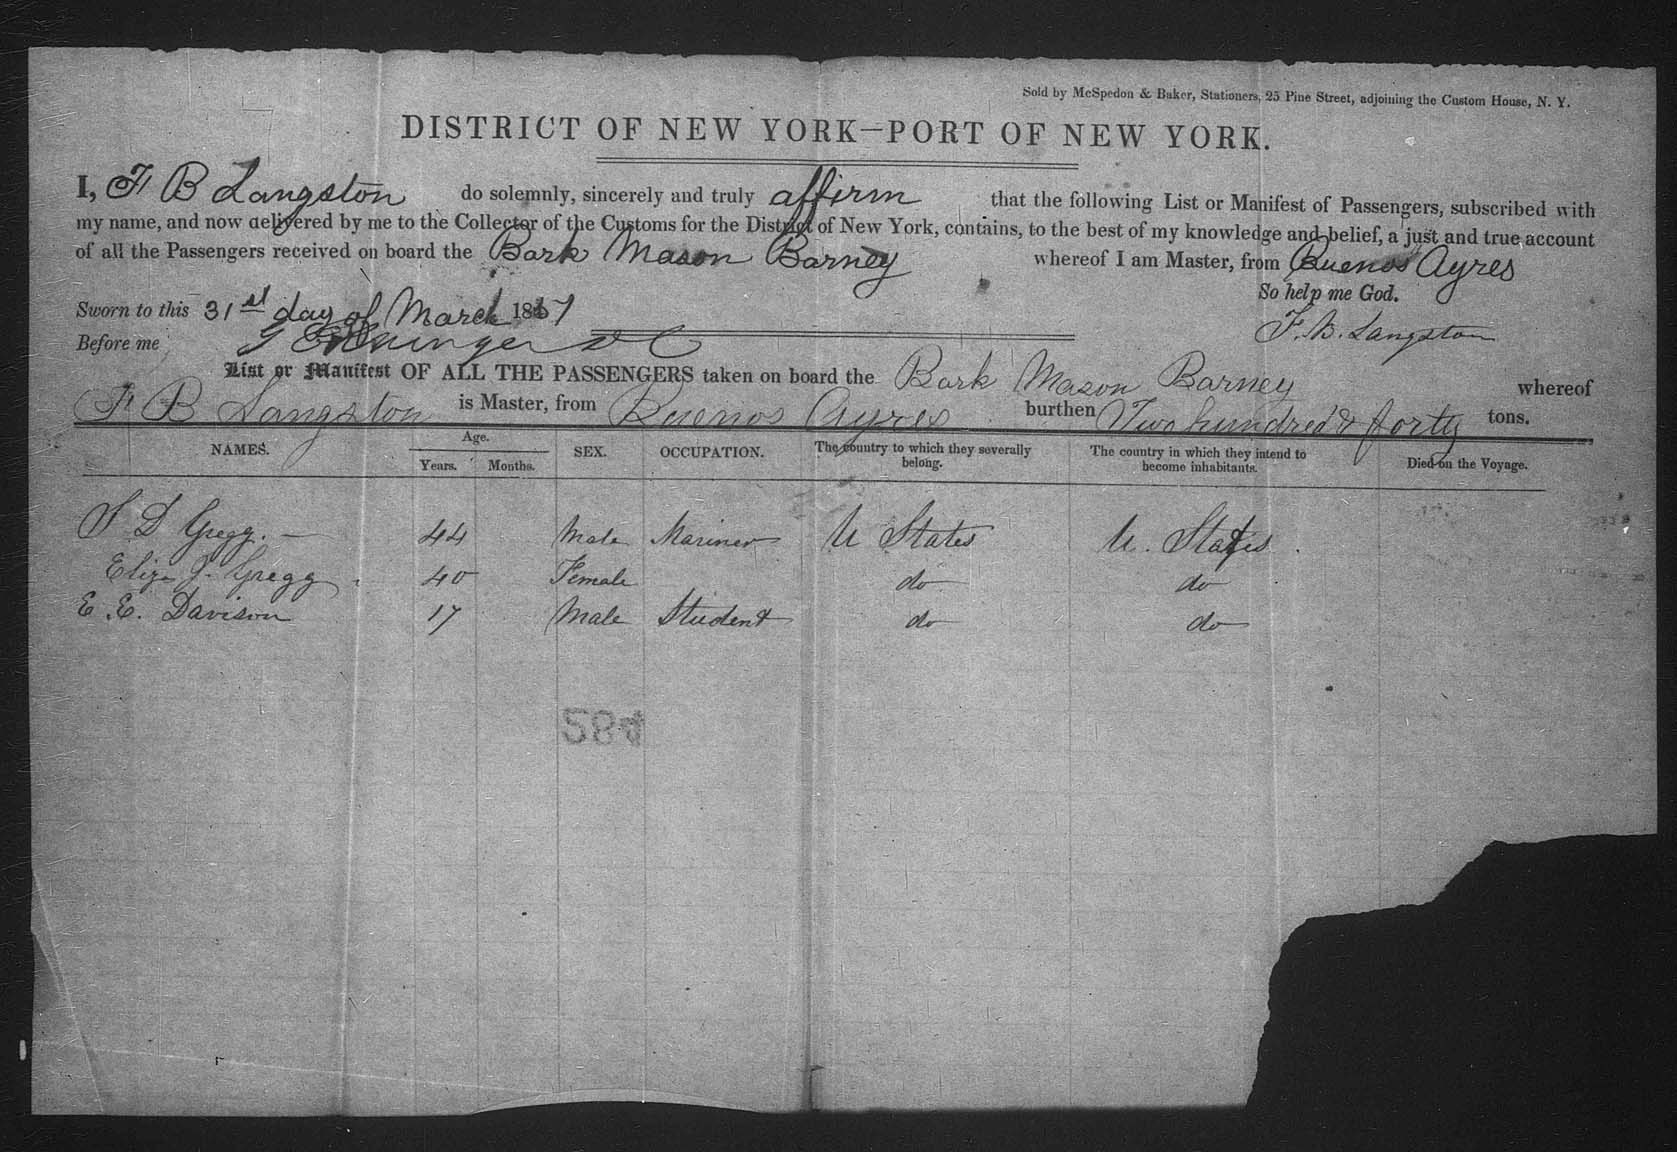 Sold by McSpedon & Baker, Stationers, 25 Pine Street, adjoining the Custom House, N. Y.
DISTRICT OF NEW YORK—PORT OF NEW YORK.
I, F B Langston do solemnly, sincerely and truly affirm that the following List or Manifest of Passengers, subscribed with
my name, and now delivered by me to the Collector of the Customs for the District of New York, contains, to the best of my knowledge and belief, a just and true account
of all the Passengers received on board the Bark Mason Barney whereof I am Master, from Buenos Ayres
So help me God.
Sworn to this 31st day of March 1867
F. B. Langston
Before me
List or Manifest OF ALL THE PASSENGERS taken on board the Bark Mason Barney whereof
F B Langston is Master, from Buenos Ayres burthen Two hundred & forty tons.
NAMES. Age. Years. Months. SEX. OCCUPATION. The country to which they severally belong. The country in which they intend to become inhabitants. Died on the Voyage.
S D Gregg. — 44 Male Mariner U States U. States.
Eliza J. Gregg. 40 Female do do
E. E. Davison 17 Male Student do do
584